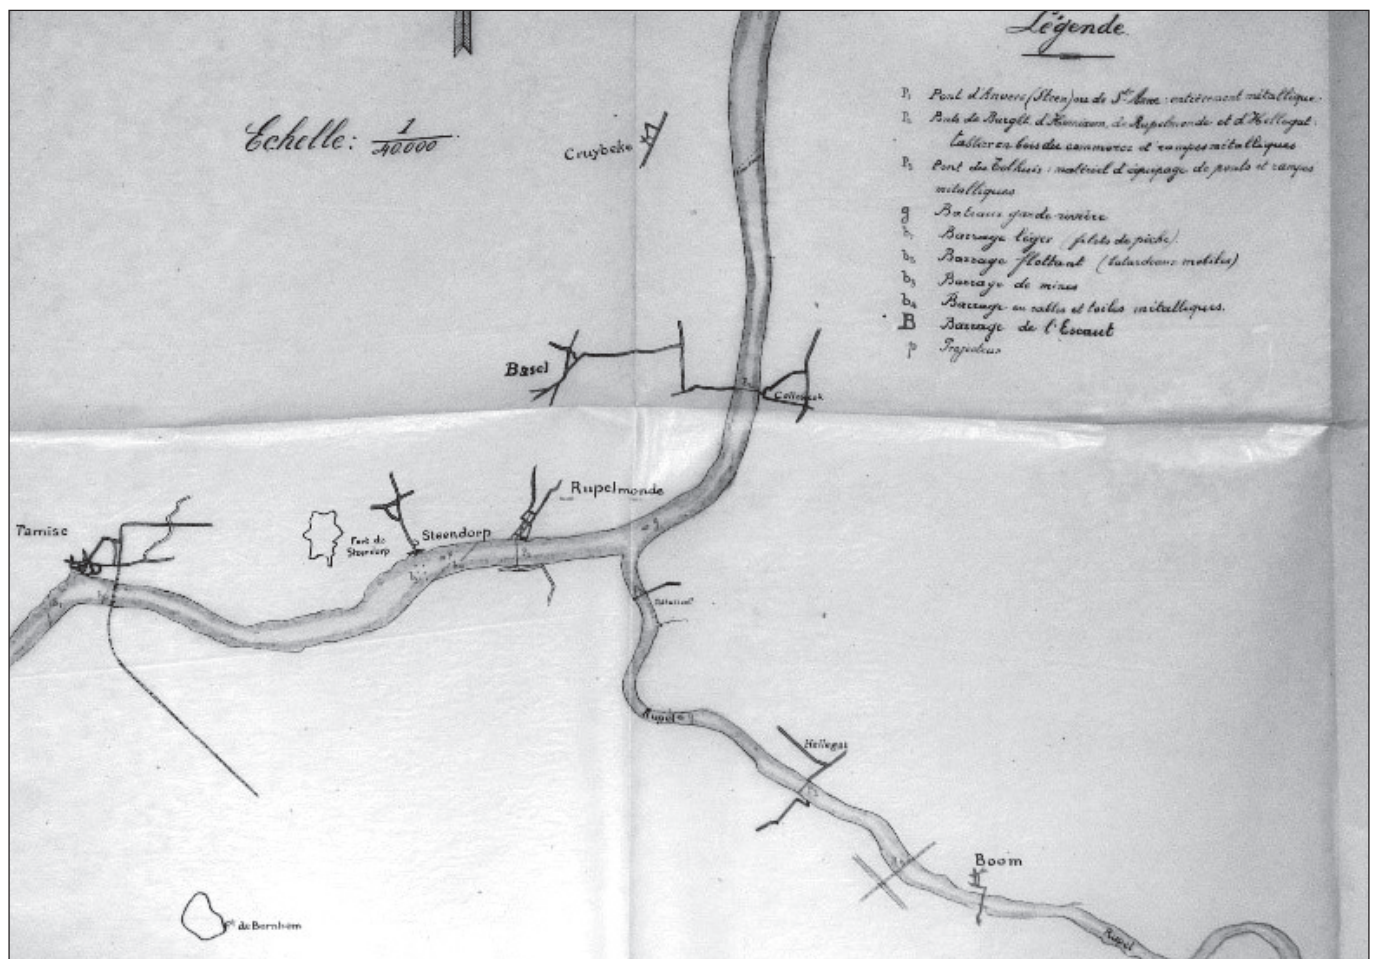 Légende
Echelle: 1/40.000
P1 Pont d'Anvers (Steen) ou de Ste Anne: entièrement métallique.
P2 Ponts de Burght, d'Hemixem, de Rupelmonde et d'Hellegat:
tablier en bois du commerce et rampes métalliques
P3 Pont du Tolhuis: matériel d'équipage de ponts et rampes
métalliques
g Bateaux garde-rivière
b1 Barrage léger (filets de pêche).
b2 Barrage flottant (batardeaux mobiles)
b3 Barrage de mines
b4 Barrage en cables et toiles métalliques.
B Barrage de l'Escaut
p Projecteur
Cruybeke
Basel
Rupelmonde
Tamise
Fort de
Steendorp
Steendorp
g
Rupel
Hellegat
Boom
Ft de Bornhem
Rupel